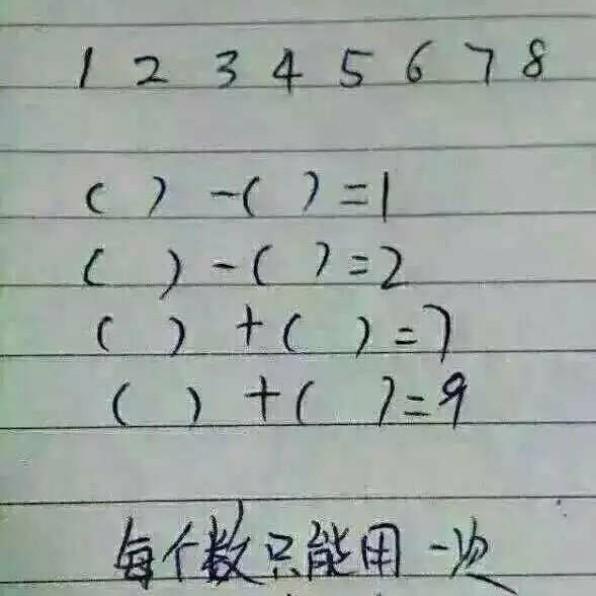 1 2 3 4 5 6 7 8
( ) -( ) =1
( ) -( ) =2
( ) +( ) =7
( ) +( ) =9
每个数只能用一次